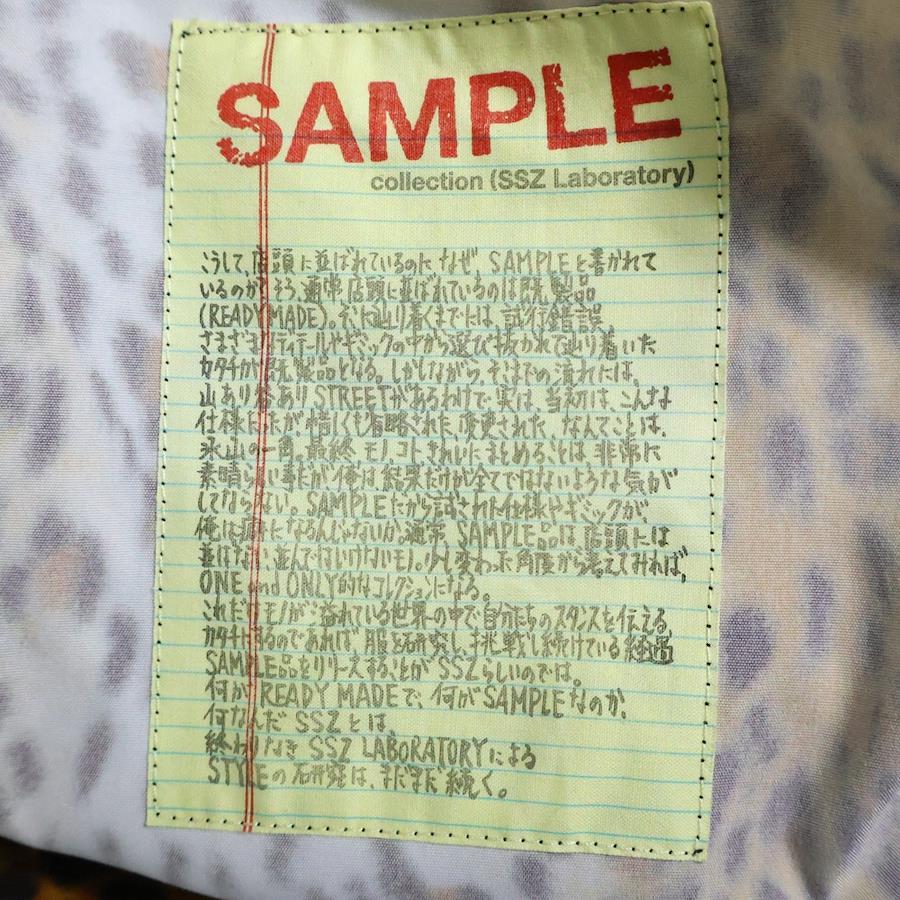 SAMPLE
collection (SSZ Laboratory)
こうして、店頭に並ばれているのに、なぜ、SAMPLEと書かれて
いるのか? そう、通常、店頭に並ばれているのは既製品
(READYMADE)。そこに辿り着くまでには、試行錯誤
さまざまなディティールやギミックの中から選び抜かれて辿り着いた
カタチが既製品となる。しかしながら、そこまでの流れには、
山あり谷ありSTREETがあるわけで実は、当初は、こんな
仕様だったが惜しくも省略された、変更された、なんてことは、
氷山の一角。最終 モノ、コト、きれいにまとめることは 非常に
素晴らしい事だが俺は結果だけが全てではないような気が
してならない。SAMPLEだから試された仕様やギミックが、
俺は癖になるんじゃないか。通常、SAMPLE品は、店頭には
並ばない、並んではいけないモノ。少し変わった角度から考えてみれば、
ONE and ONLY的なコレクションになる。
これだけモノが溢れている世界の中で、自分たちのスタンスを伝える
カタチにするのであれば、服を研究し、挑戦し続けている経過
SAMPLE品をリリースすることがSSZらしいのでは。
何がREADY MADEで、何がSAMPLEなのか、
何なんだ SSZとは、
終わりなき SSZ LABORATORYによる
STYLEの研究は、まだまだ続く。